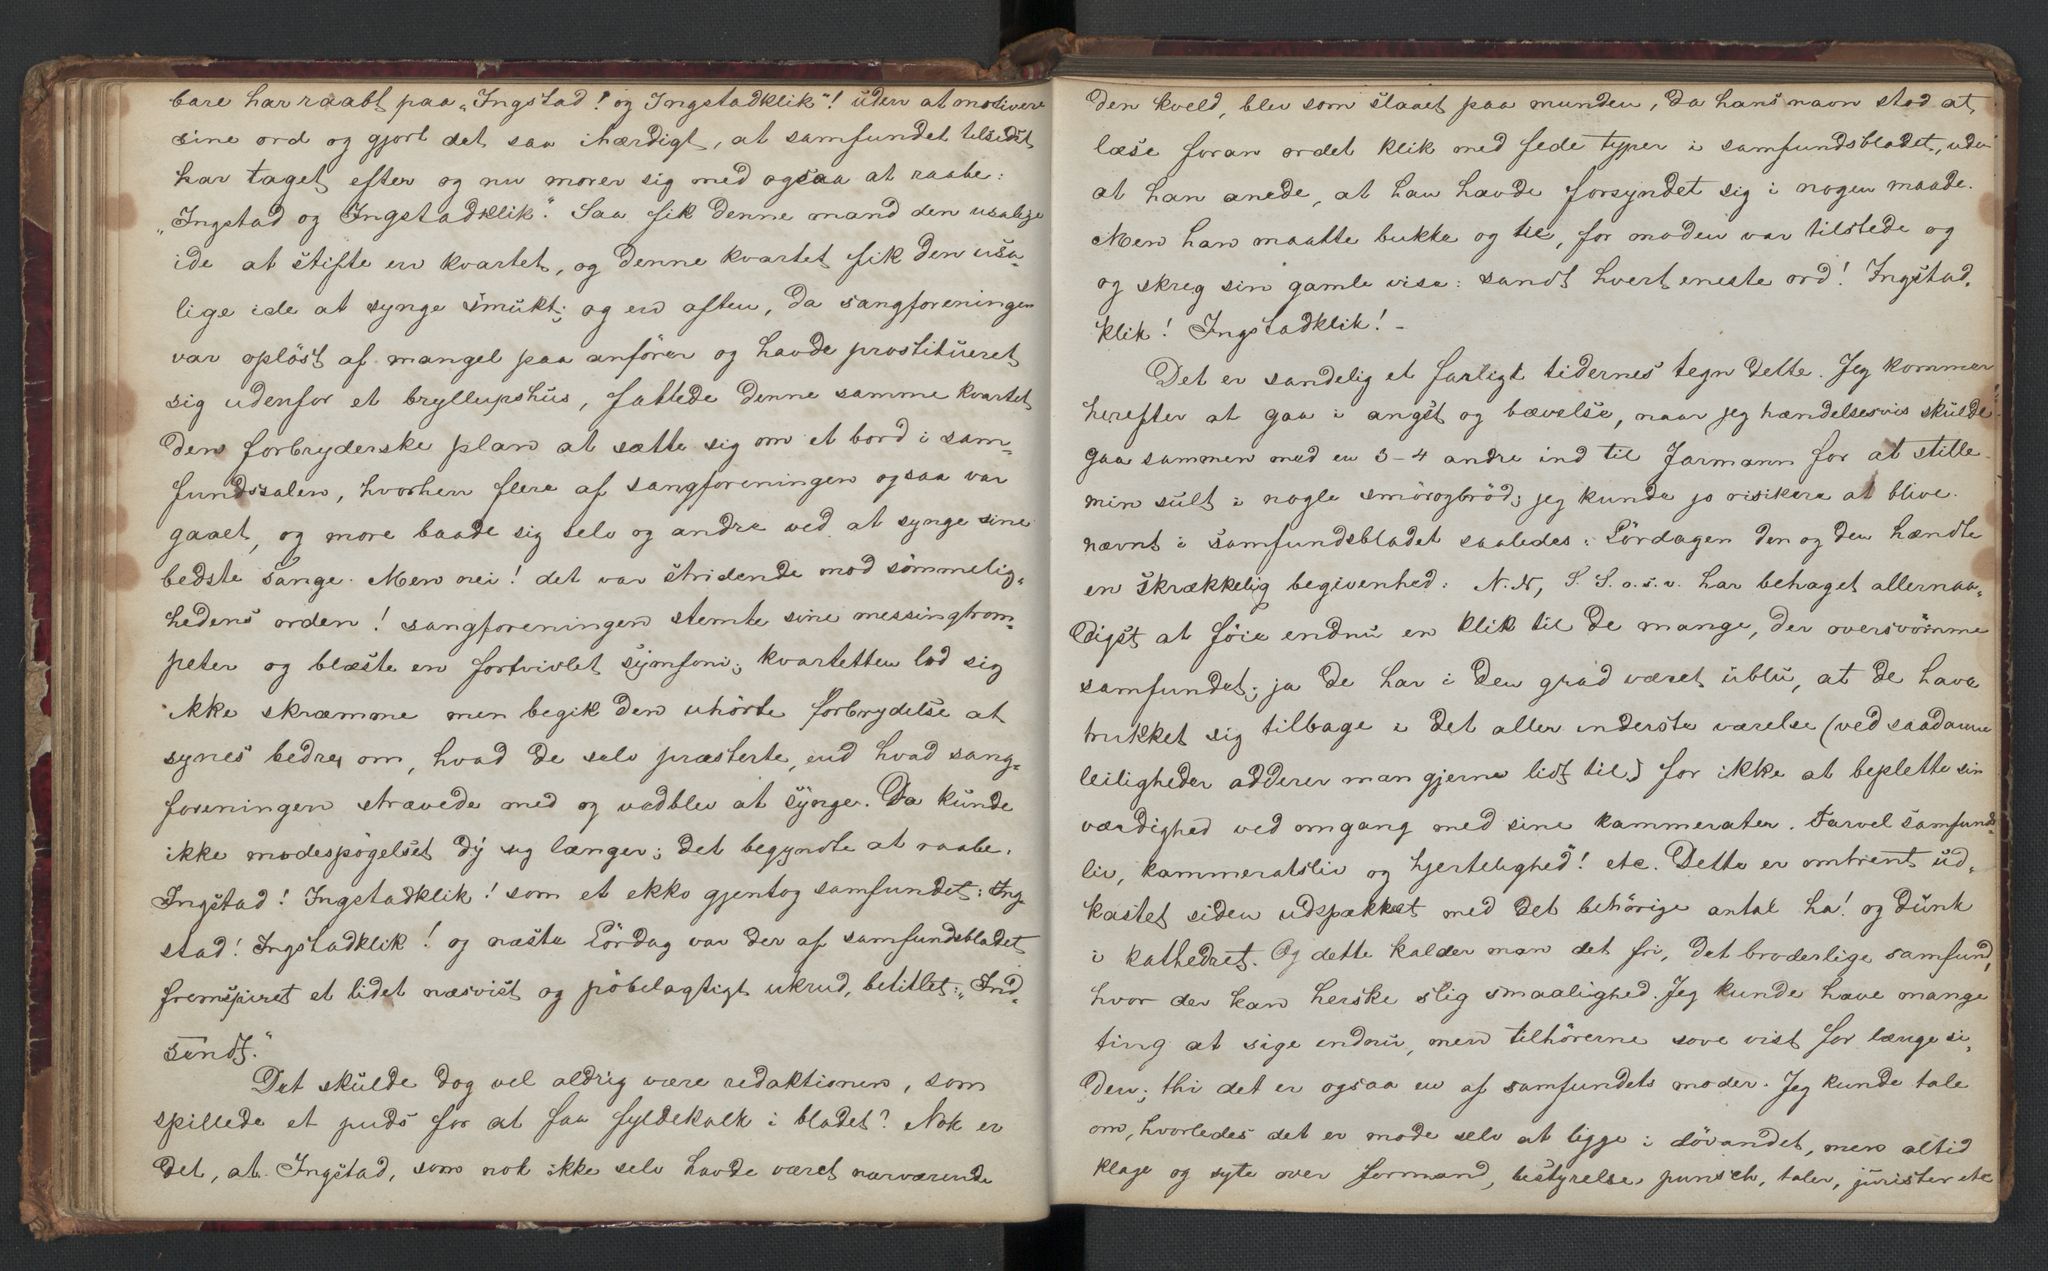 bare har raabt paa „Ingstad! og Ingstadklik"! uden at motivere
sine ord og gjort det saa ihærdigt, at samfundet tilsidst
har taget efter og nu morer sig med ogsaa at raabe:
„Ingstad og Ingstadklik". Saa fik denne mand den usalige
ide at stifte en kvartet, og denne kvartet fik den usa-
lige ide at synge smukt; og en aften, da sangforeningen
var opløst af mangel paa anfører og havde prostitueret
sig udenfor et bryllupshus, fattede denne samme kvartet
den forbryderske plan at sætte sig om et bord i sam-
fundssalen, hvorhen flere af sangforeningen ogsaa var
gaaet, og more baade sig selv og andre ved at synge sine
bedste sange. Men nei! det var stridende mod sømmelig-
hedens orden! sangforeningen stemte sine messingtrom-
peter og blæste en fortvivlet symfoni; kvartetten lod sig
ikke skræmme men begik den uhørte forbrydelse at
synes bedre om, hvad de selv præsterte, end hvad sang-
foreningen strævede med og vedblev at synge. Da kunde
ikke modespøgelset dy sig længer; det begyndte at raabe:
Ingstad! Ingstadklik! som et ekko gjentog samfundet: Ing-
stad! Ingstadklik! og næste Lørdag var der af samfundsbladet
fremspiret et lidet næsvist og pøbelagtigt ukrud, betitlet: „Ind-
sendt."
Det skulde dog vel aldrig være redaktionen, som
spillede et puds for at faa fyldekalk i bladet? Nok er
det, at Ingstad, som nok ikke selv havde været nærværende
den kveld, blev som slaaet paa munden, da hans navn stod at
læse foran ordet klik med fede typer i samfundsbladet, uden
at han anede, at han havde forsyndet sig i nogen maade.
Men han maatte bukke og tie, for moden var tilstede og
og skreg sin gamle vise: sandt hvert eneste ord! Ingstad,
klik! Ingstadklik! –
Det er sandelig et farligt tidernes tegn dette. Jeg kommer
herefter at gaa i angst og bævelse, naar jeg hændelsesvis skulde
gaa sammen med en 3-4 andre ind til Jarmann for at stille
min sult i nogle smørogbrød; jeg kunde jo risikere at blive
nævnt i samfundsbladet saaledes: Lørdagen den og den hændte
en skrækkelig begivenhed: N. N, S. S. o. s. v. har behaget allernaa-
digst at føie endnu en klik til de mange, der oversvømme
samfundet; ja de har i den grad været ublu, at de have
trukket sig tilbage i det aller inderste værelse (ved saadanne
leiligheder adderer man gjerne lidt til) for ikke at beplette sin
værdighed ved omgang med sine kammerater. Farvel samfunds-
liv, kammeratsliv og hjertelighed! etc. Dette er omtrent ud-
kastet siden udspækket med det behørige antal ha! og dunk
i kathedret. Og dette kalder man det fri, det broderlige samfund,
hvor der kan herske slig smaalighed. Jeg kunde have mange
ting at sige endnu, men tilhørerne sove vist for længe si-
den; thi det er ogsaa en af samfundets moder. Jeg kunde tale
om, hvorledes det er mode selv at ligge i døvandet, men altid
klage og syte over formand, bestyrelse, punsch, taler, jurister etc